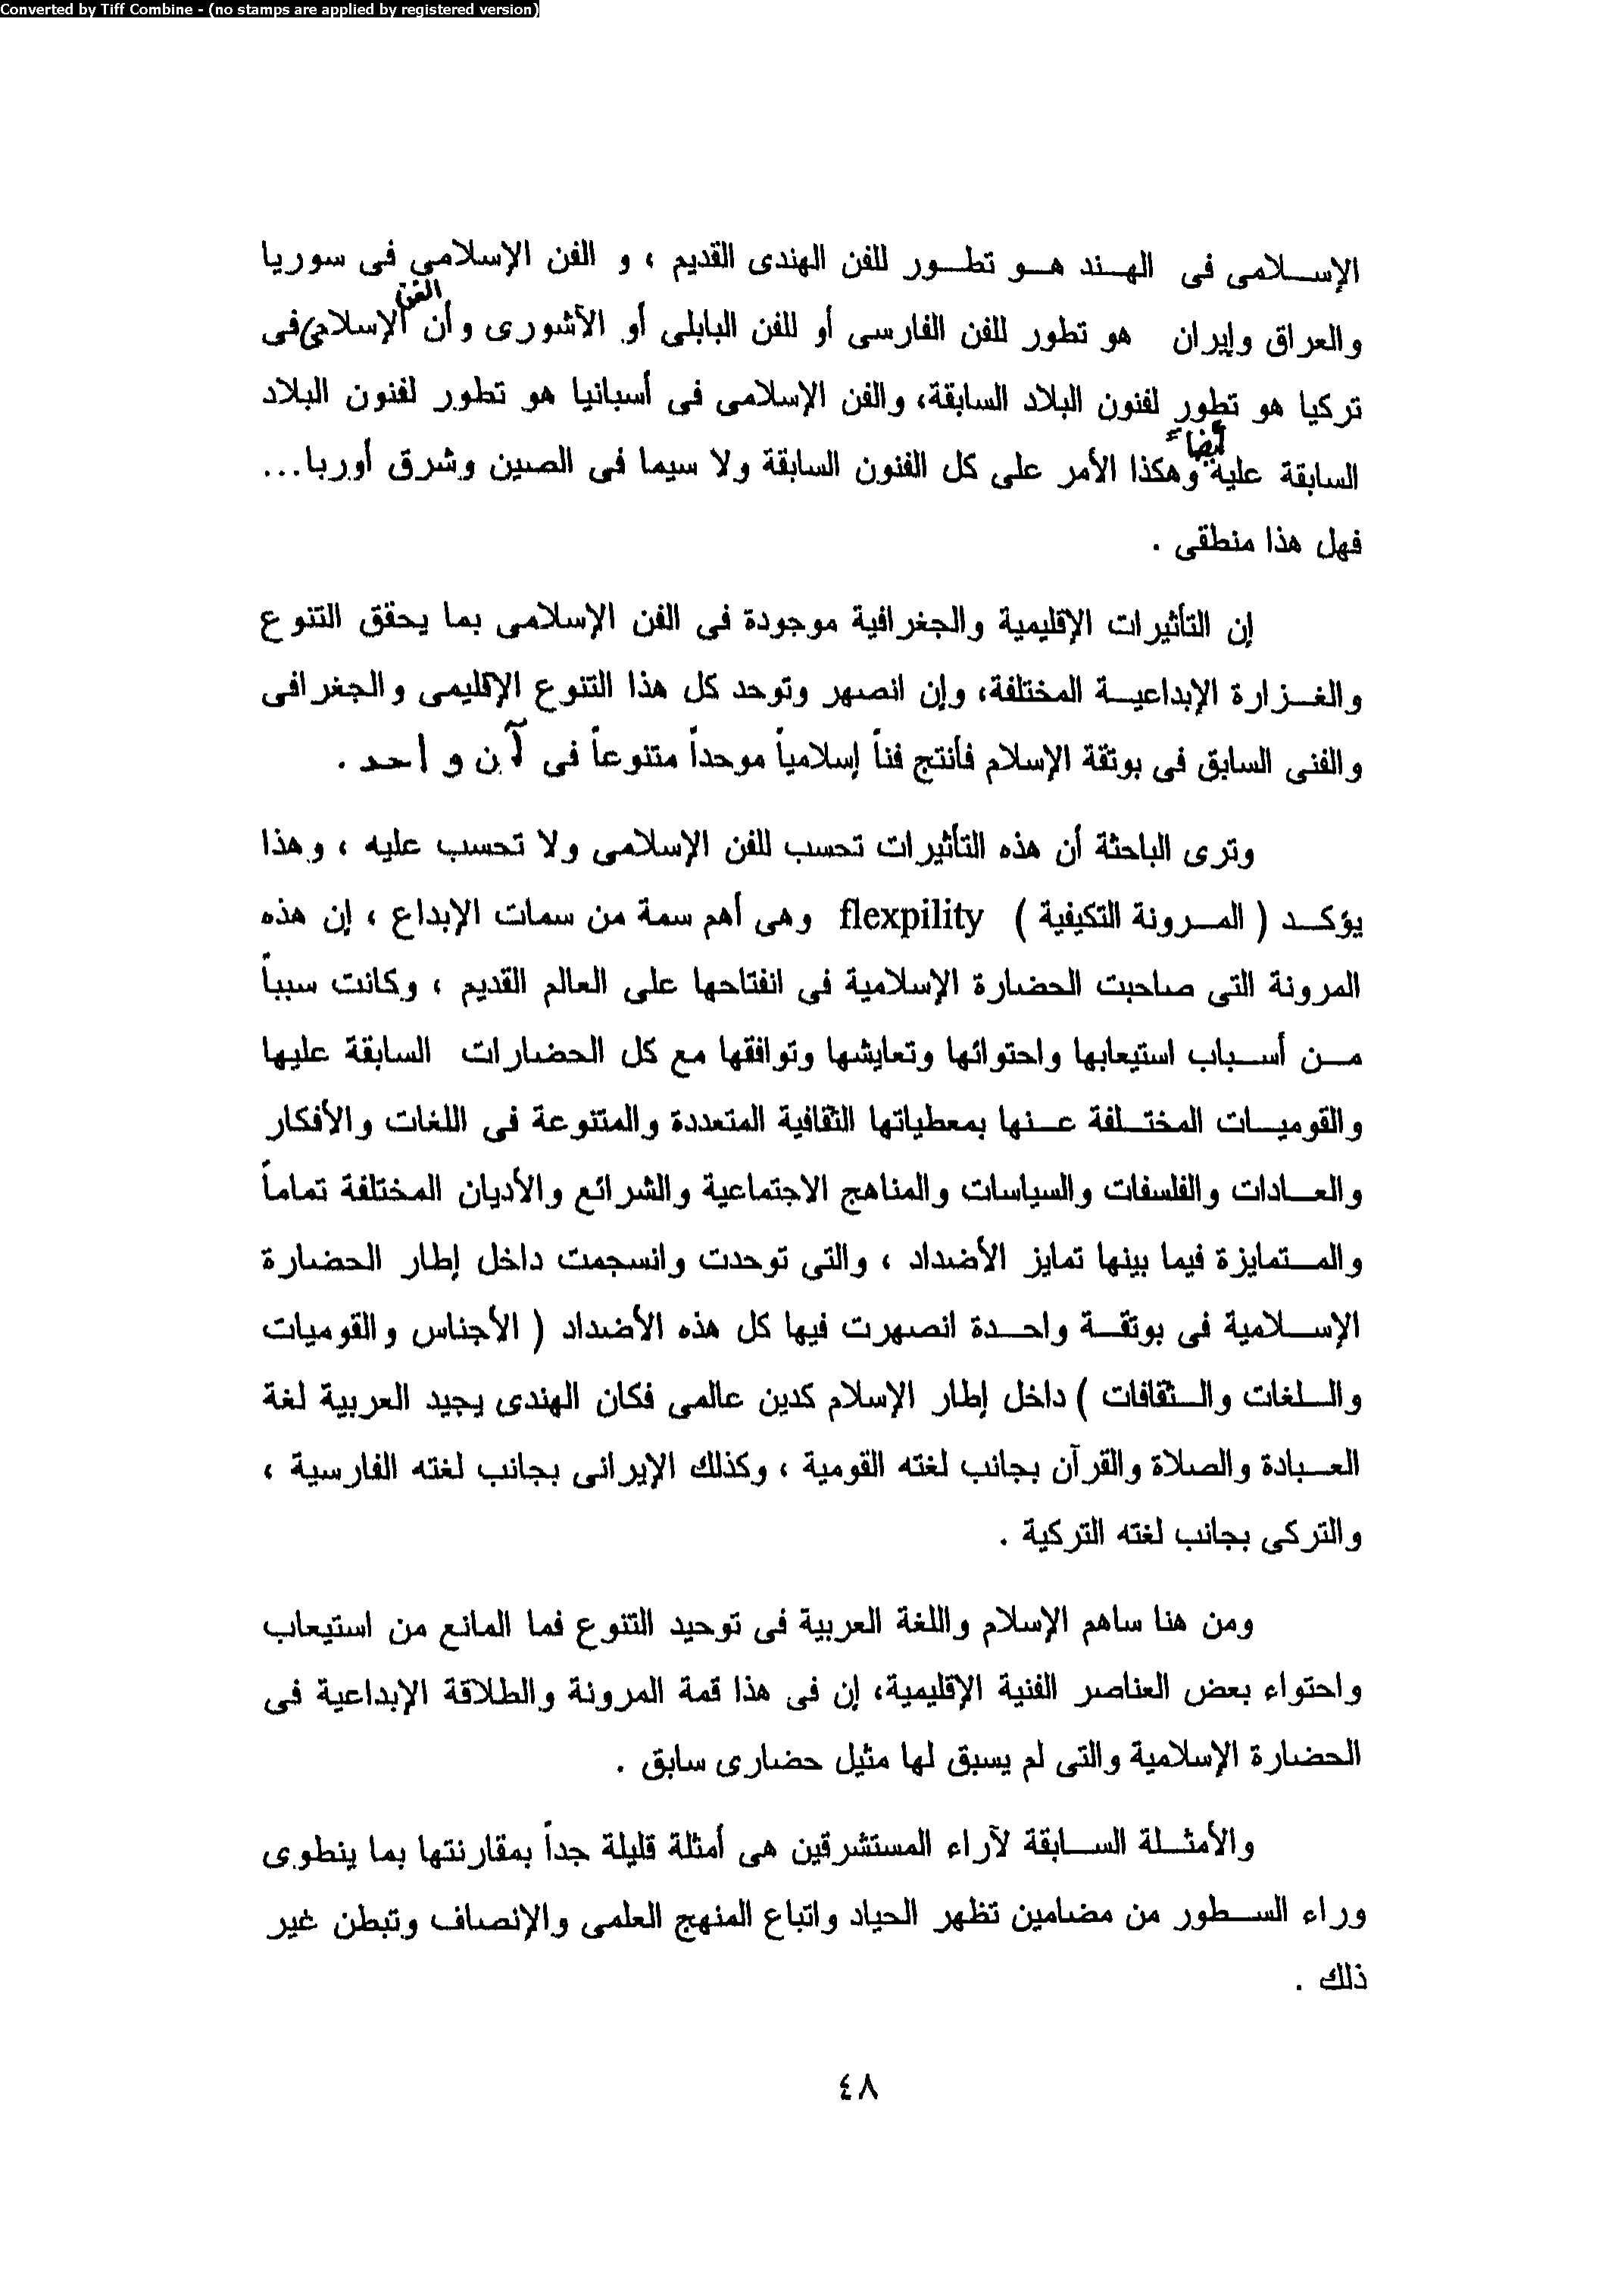 Converted by Tiff Combine - (no stamps are applied by registered version)
الإسلامى فى الهند هو تطور للفن الهندى القديم ، و الفن الإسلامى فى سوريا
والعراق وإيران هو تطور للفن الفارسى أو للفن البابلى أو الآشورى وأن الفن الإسلامى فى
تركيا هو تطور لفنون البلاد السابقة، والفن الإسلامى فى أسبانيا هو تطور لفنون البلاد
السابقة عليه أيضاً وهكذا الأمر على كل الفنون السابقة ولا سيما فى الصين وشرق أوربا...
فهل هذا منطقى .
إن التأثيرات الإقليمية والجغرافية موجودة فى الفن الإسلامى بما يحقق التنوع
والغزارة الإبداعية المختلفة، وإن انصهر وتوحد كل هذا التنوع الإقليمى والجغرافى
والفنى السابق فى بوتقة الإسلام فأنتج فناً إسلامياً موحداً متنوعاً فى آن واحد .
وترى الباحثة أن هذه التأثيرات تحسب للفن الإسلامى ولا تحسب عليه ، وهذا
يؤكد ( المرونة التكيفية ) flexpility وهى أهم سمة من سمات الإبداع ، إن هذه
المرونة التى صاحبت الحضارة الإسلامية فى انفتاحها على العالم القديم ، وكانت سبباً
من أسباب استيعابها واحتوائها وتعايشها وتوافقها مع كل الحضارات السابقة عليها
والقوميات المختلفة عنها بمعطياتها الثقافية المتعددة والمتنوعة فى اللغات والأفكار
والعادات والفلسفات والسياسات والمناهج الاجتماعية والشرائع والأديان المختلفة تماماً
والمتمايزة فيما بينها تمايز الأضداد ، والتى توحدت وانسجمت داخل إطار الحضارة
الإسلامية فى بوتقة واحدة انصهرت فيها كل هذه الأضداد ( الأجناس والقوميات
واللغات والثقافات ) داخل إطار الإسلام كدين عالمى فكان الهندى يجيد العربية لغة
العبادة والصلاة والقرآن بجانب لغته القومية ، وكذلك الإيرانى بجانب لغته الفارسية ،
والتركى بجانب لغته التركية .
ومن هنا ساهم الإسلام واللغة العربية فى توحيد التنوع فما المانع من استيعاب
واحتواء بعض العناصر الفنية الإقليمية، إن فى هذا قمة المرونة والطلاقة الإبداعية فى
الحضارة الإسلامية والتى لم يسبق لها مثيل حضارى سابق .
والأمثلة السابقة لآراء المستشرقين هى أمثلة قليلة جداً بمقارنتها بما ينطوى
وراء السطور من مضامين تظهر الحياد واتباع المنهج العلمى والإنصاف وتبطن غير
ذلك .
٤٨